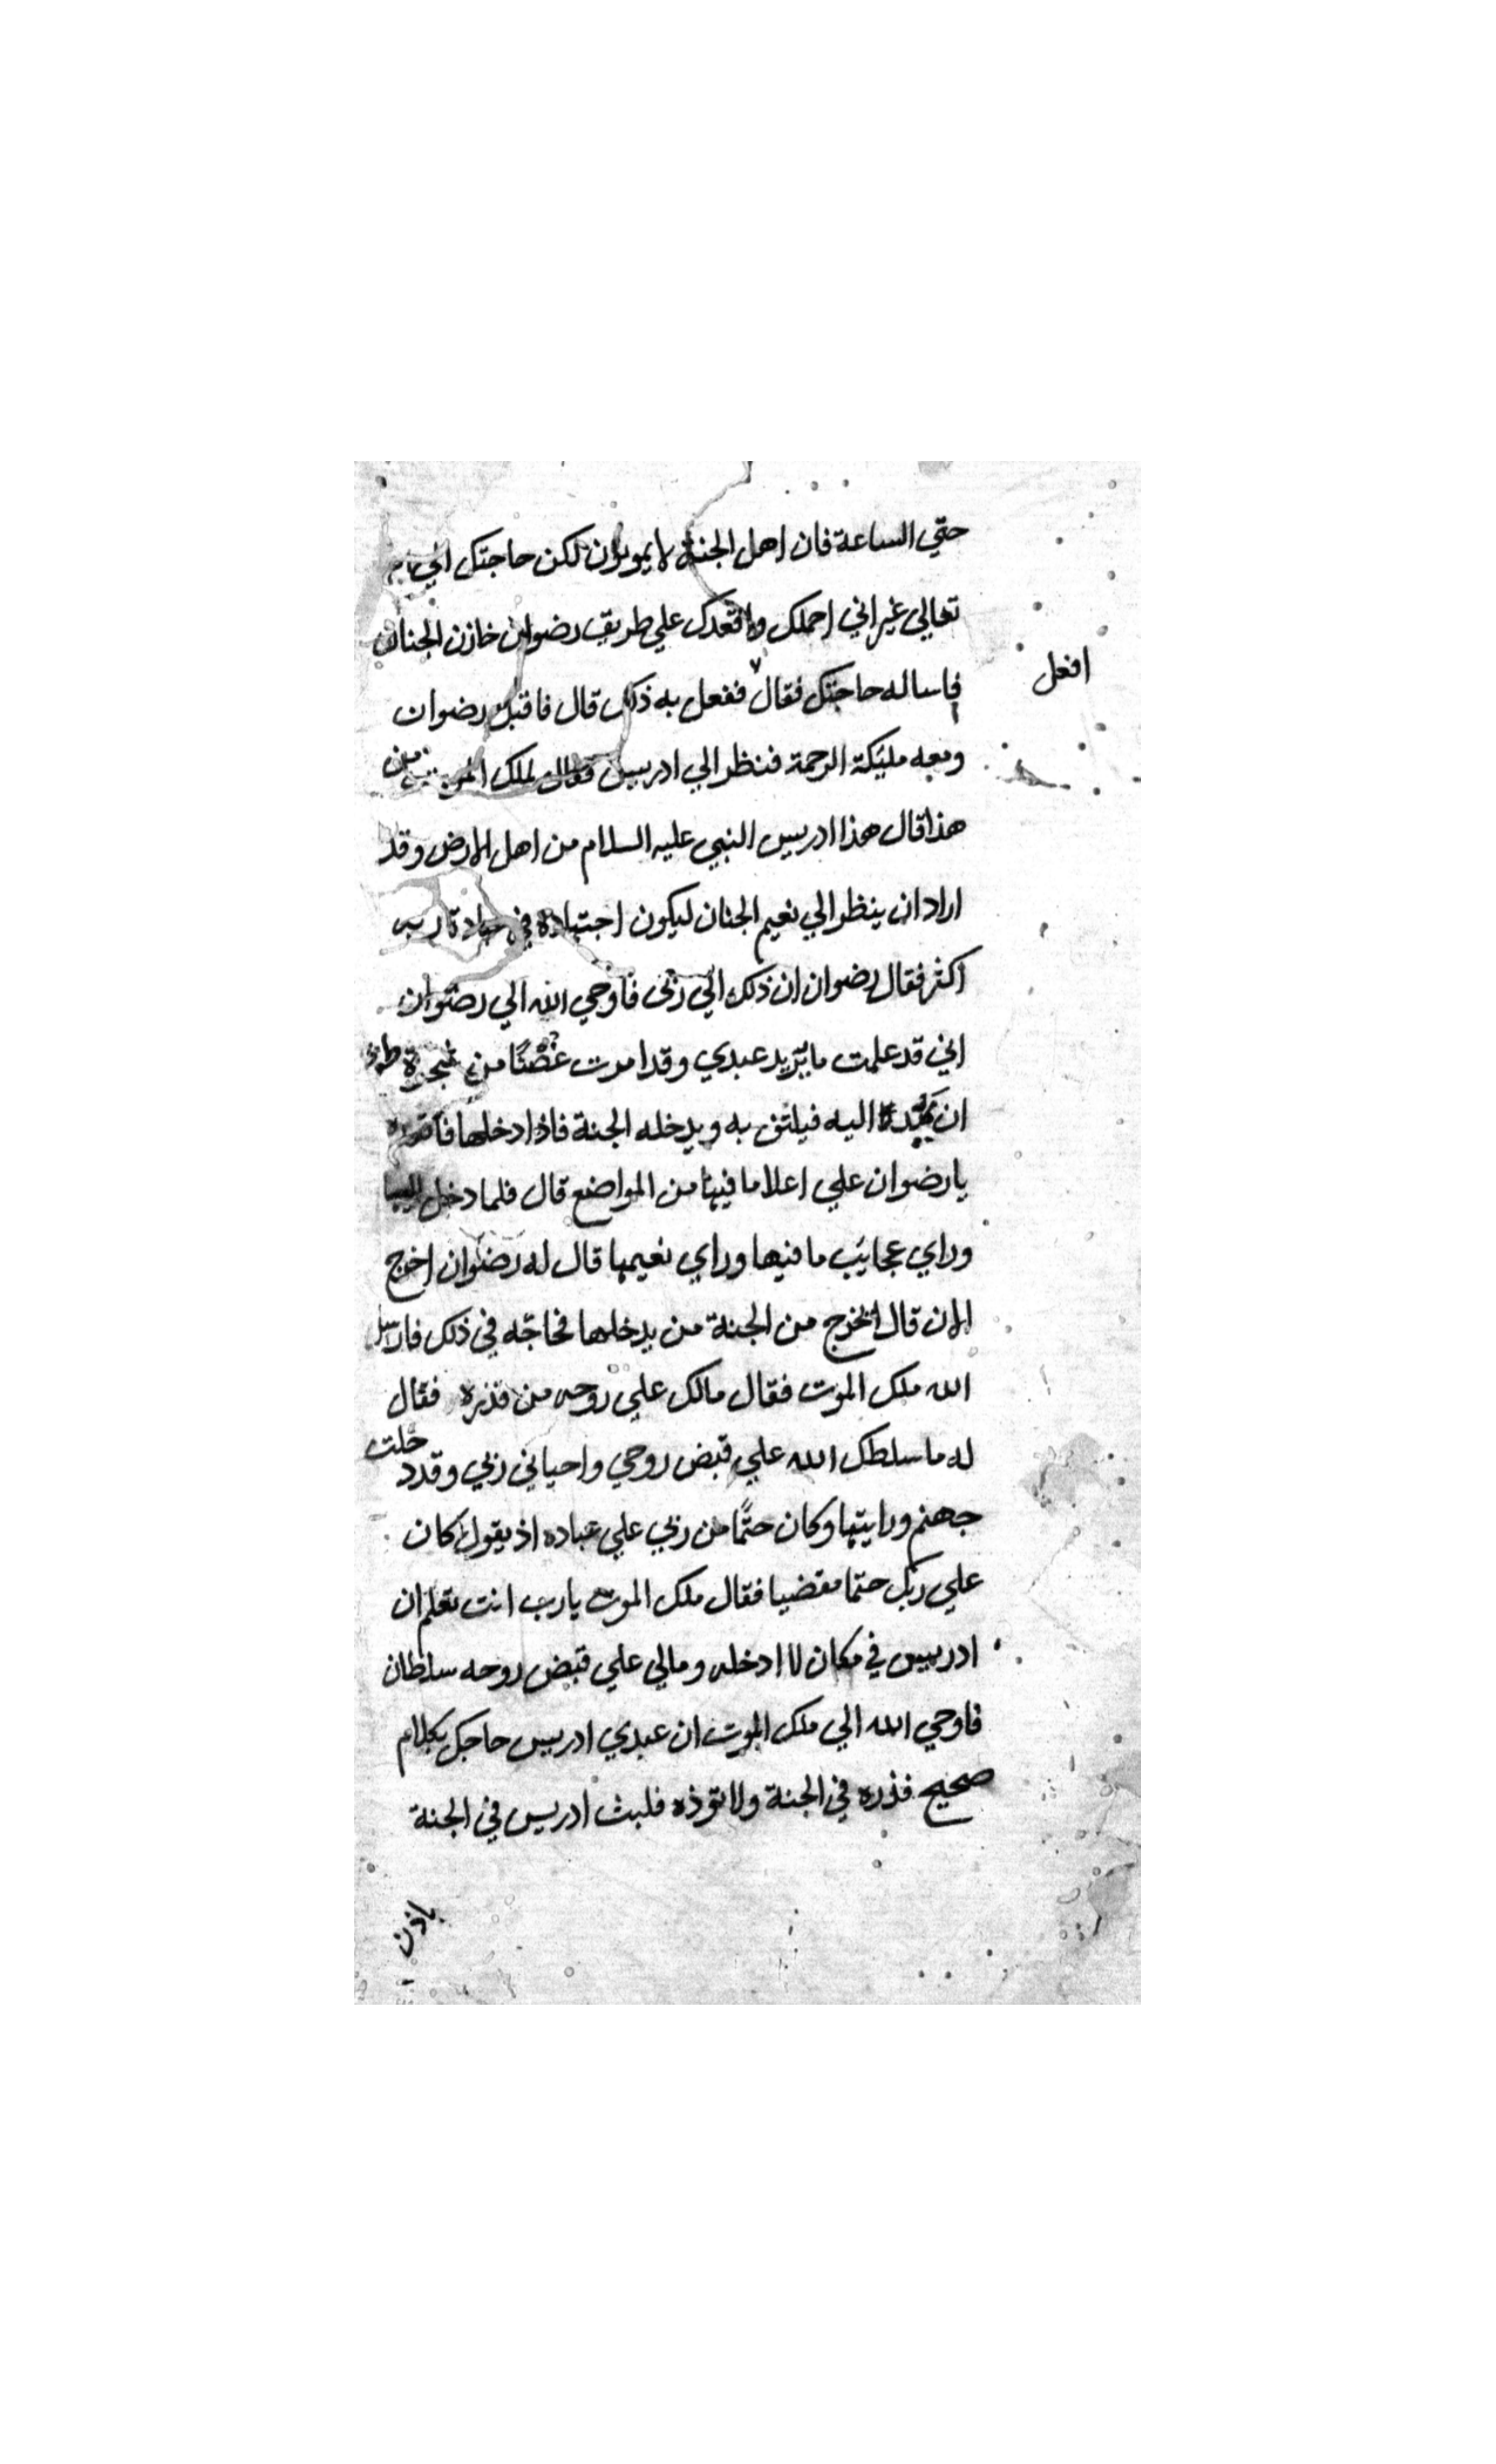 حتي الساعة فان اهل الجنة لا يموتون لكن حاجتك الي
تعالي غير اني احملك واقعدك علي طريق رضوان خازن الجنان
فاساله حاجتك فقال ففعل به ذلك قال فاقبل رضوان
افعل
ومعه مليكة الرحمة فنظر الي ادريس فقال لملك الموت من
هذا قال هذا ادريس النبي عليه السلام من اهل الارض وقد
اراد ان ينظر الي نعيم الجنان ليكون اجتهاده في ربه
اكثر فقال رضوان ان ذلك الي ربي فاوحي الله الي رضوان
اني قد علمت ما يريد عبدي وقد امرت غصنًا من شجرة طوبي
ان اليه فيلتف به ويدخله الجنة فاذا دخلها فاقعده
يا رضوان علي اعلا ما فيها من المواضع قال فلما دخل اليها
وراي عجايب ما فيها وراي نعيمها قال له رضوان اخرج
الان قال ايخرج من الجنة من يدخلها فحاجّه في ذلك فارسل
الله ملك الموت فقال مالك علي روحه من قدره فقال
له ما سلطك الله علي قبض روحي واحياني ربي وقد دخلت
جهنم ورايتها وكان حتمًا من ربي علي عباده اذ يقول كان
علي ربك حتما مقضيا فقال ملك الموت يا رب انت تعلم ان
ادريس في مكان لا ادخله ومالي علي قبض روحه سلطان
فاوحي الله الي ملك الموت ان عبدي ادريس حاجك بكلام
صحيح فذره في الجنة ولا توذه فلبث ادريس في الجنة
باذن